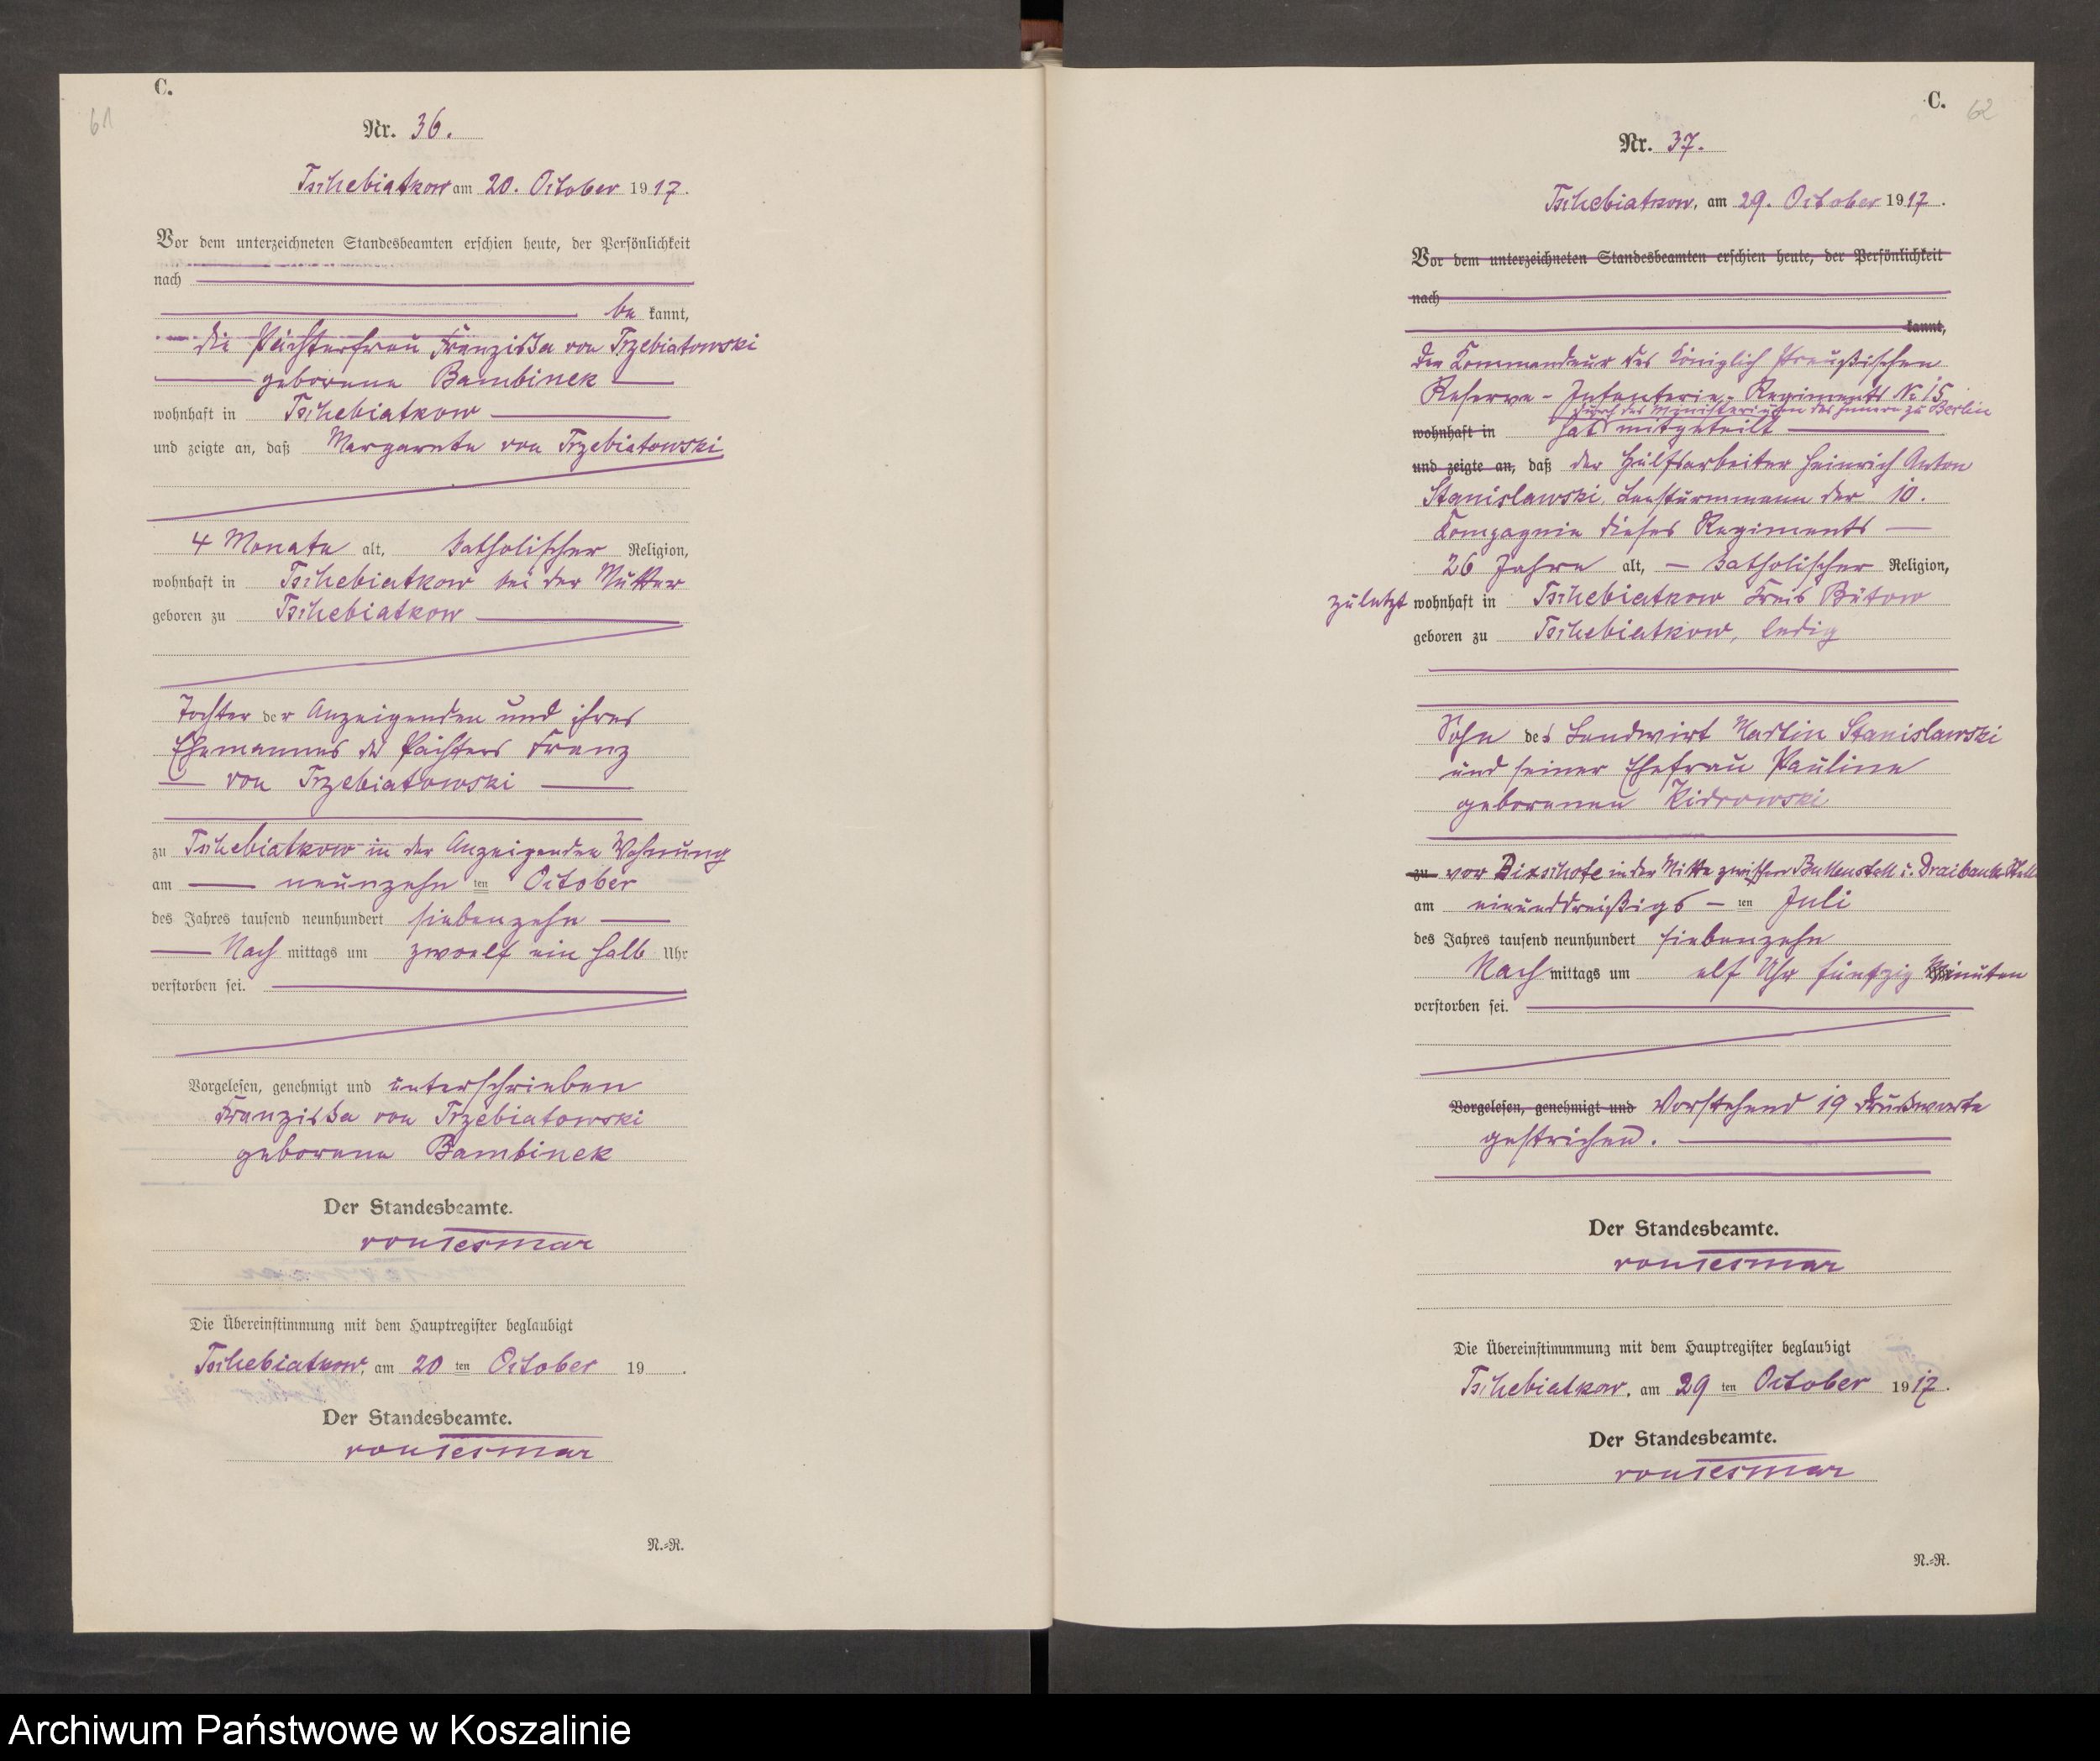 C.
61
Nr. 36.
Tschebiatkow am 20. October 1917.
Vor dem unterzeichneten Standesbeamten erschien heute, der Persönlichkeit
nach
be kannt,
die Pächterfrau Franziska von Trzebiatowski
geborene Bambinek
wohnhaft in Tschebiatkow
und zeigte an, daß Margarete von Trzebiatowski
4 Monate alt, katholischer Religion,
wohnhaft in Tschebiatkow bei der Mutter
geboren zu Tschebiatkow
Tochter der Anzeigenden und ihres
Ehemannes des Pächters Franz
von Trzebiatowski
zu Tschebiatkow in der Anzeigenden Wohnung
am neunzehn ten October
des Jahres tausend neunhundert siebenzehn
Nach mittags um zwoelf ein halb Uhr
verstorben sei.
Vorgelesen, genehmigt und unterschrieben
Franziska von Trzebiatowski
geborene Bambinek
Der Standesbeamte.
Die Übereinstimmung mit dem Hauptregister beglaubigt
Tschebiatkow, am 20 ten October 19 .
Der Standesbeamte.
N.=R.
C.
62
Nr. 37.
Tschebiatkow, am 29. October 1917.
Vor dem unterzeichneten Standesbeamten erschien heute, der Persönlichkeit
nach
kannt,
Der Kommandeur des Königlich Preußischen
Reserve - Infanterie - Regiments No 15
durch das Ministerium des Innern zu Berlin
wohnhaft in hat mitgeteilt
und zeigte an, daß der Hülfsarbeiter Heinrich Anton
Stanislawski, Landsturmmann der 10.
Kompagnie dieses Regiments
26 Jahre alt, katholischer Religion,
zuletzt wohnhaft in Tschebiatkow Kreis Bütow
geboren zu Tschebiatkow, ledig
Sohn des Landwirt Martin Stanislawski
und seiner Ehefrau Pauline
geborenen Kidrowski
zu vor Bixschote in der Mitte zwischen i. Draibank
am einunddreißigs ten Juli
des Jahres tausend neunhundert siebenzehn
Nach mittags um elf Uhr fünfzig Minuten
verstorben sei.
Vorgelesen, genehmigt und Vorstehend 19 Druckworte
gestrichen.
Der Standesbeamte.
Die Übereinstimmmung mit dem Hauptregister beglaubigt
Tschebiatkow, am 29 ten October 1917.
Der Standesbeamte.
N.=R.
Archiwum Państwowe w Koszalinie